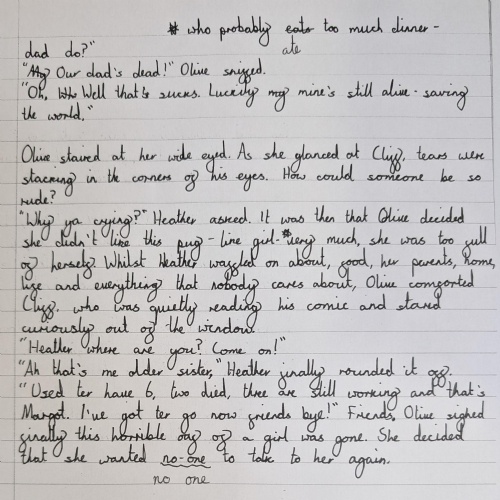 who probably eats too much dinner -
ate
dad do?"
"My Our dad's dead!" Olive sniffed.
"Oh, Who Well that's sucks. Luckily my mine's still alive - saving
the world."
Olive staired at her wide eyed. As she glanced at Cliff, tears were
stacking in the corners of his eyes. How could someone be so
rude?
"Why ya crying?" Heather asked. It was then that Olive decided
she didn't like this pug - like girl very much, she was too full
of herself. Whilst Heather waffled on about, food, her parents, home,
life and everything that nobody cares about, Olive comforted
Cliff. who was quietly reading his comic and stared
curiously out of the window.
"Heather where are you? Come on!"
"Ah that's me older sister," Heather finally rounded it off.
"Used ter have 6, two died, three are still working and that's
Margot. I've got ter go now friends bye!" Friends, Olive sighed
finally this horrible day of a girl was gone. She decided
that she wanted no-one to talk to her again.
no one